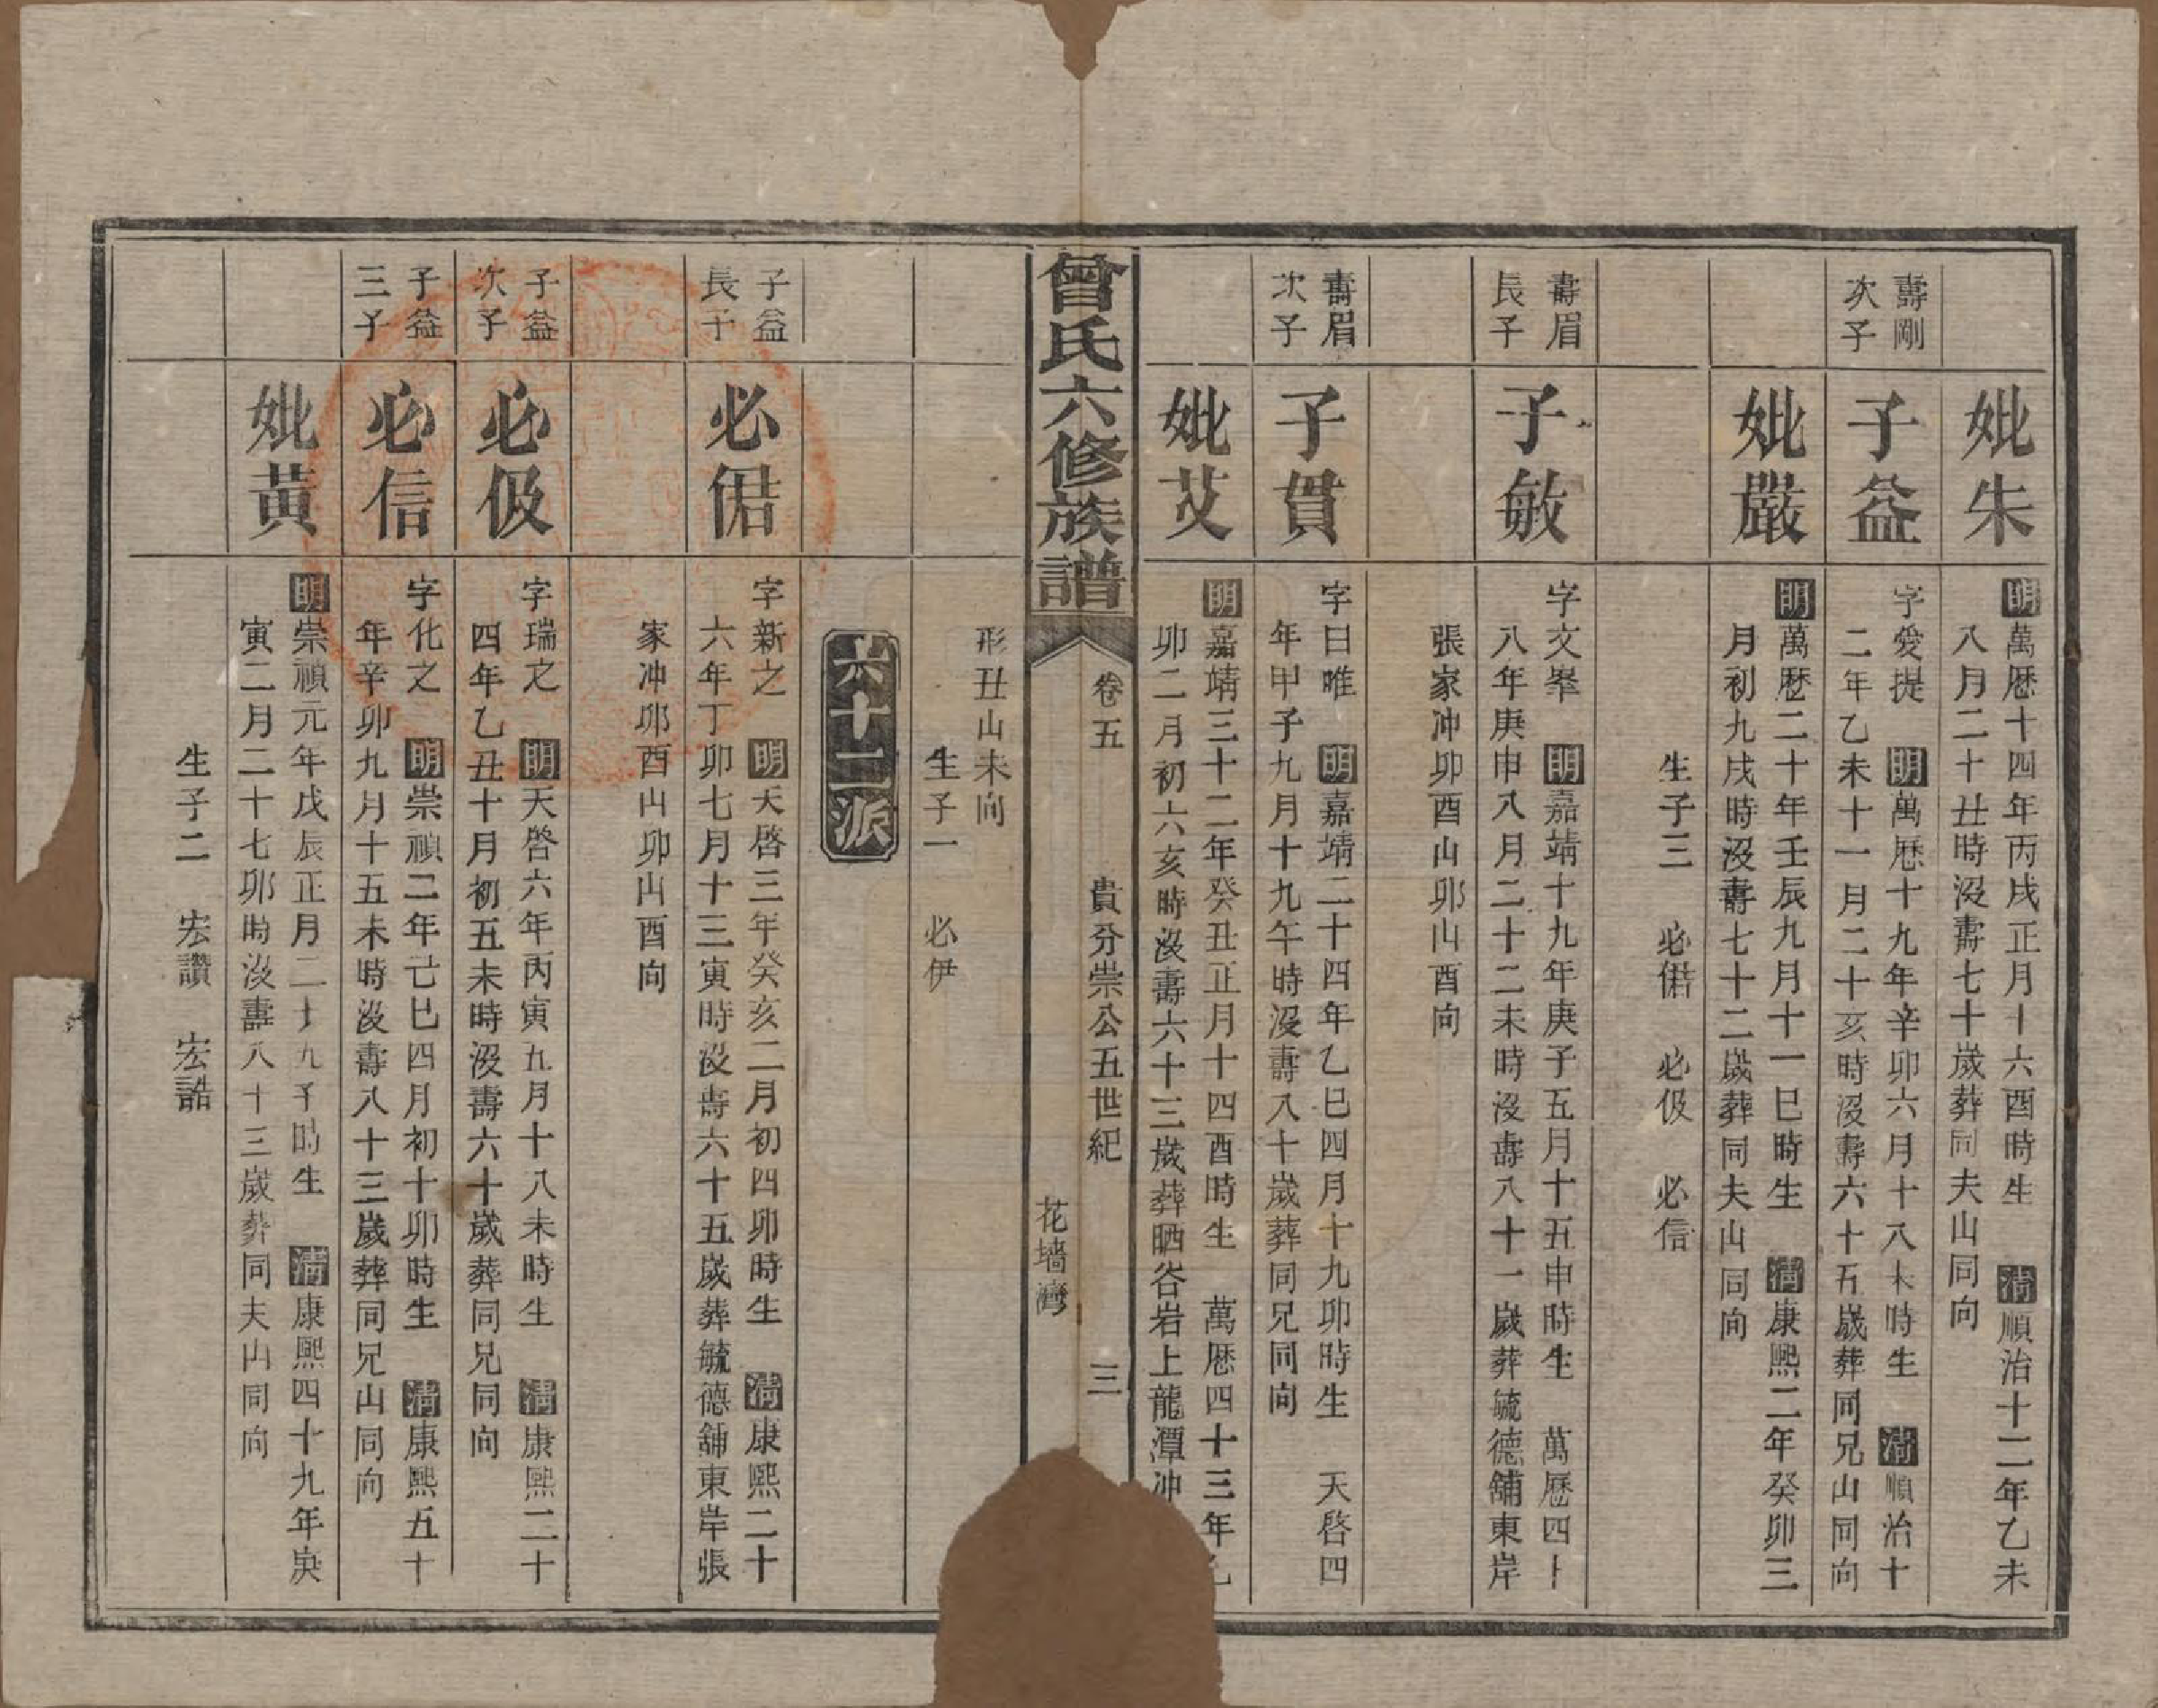 妣朱
明萬厯十四年丙戌正月十六酉時生　清順治十二年乙未
八月二十丑時沒壽七十歲葬同夫山同向
壽剛
次子
子益
字愛提　明萬厯十九年辛卯六月十八未時生　清順治十
二年乙未十一月二十亥時沒壽六十五歲葬同兄山同向
妣嚴
明萬厯二十年壬辰九月十一巳時生　清康熙二年癸卯三
月初九戌時沒壽七十二歲葬同夫山同向
生子三　必偆　必伋　必信
壽眉
長子
子敏
字文峯　明嘉靖十九年庚子五月十五申時生　萬厯四十
八年庚申八月二十二未時沒壽八十一歲葬毓德舖東岸
張家冲卯酉山卯山酉向
壽眉
次子
子貫
字曰唯　明嘉靖二十四年乙巳四月十九卯時生　天啓四
年甲子九月十九午時沒壽八十歲葬同兄同向
妣艾
明嘉靖三十二年癸丑正月十四酉時生　萬厯四十三年乙
卯二月初六亥時沒壽六十三歲葬晒谷岩上龍潭冲
曾氏六修族譜
卷五　貴分崇公五世紀　三
花墻灣
形丑山未向
生子一　必伊
六十二派
子益
長子
必偆
字新之　明天啓三年癸亥二月初四卯時生　清康熙二十
六年丁卯七月十三寅時沒壽六十五歲葬毓德舖東岸張
家冲卯酉山卯山酉向
子益
次子
必伋
字瑞之　明天啓六年丙寅五月十八未時生　清康熙二十
四年乙丑十月初五未時沒壽六十歲葬同兄同向
子益
三子
必信
字化之　明崇禎二年己巳四月初十卯時生　清康熙五十
年辛卯九月十五未時沒壽八十三歲葬同兄山同向
妣黃
明崇禎元年戊辰正月二十九子時生　清康熙四十九年庚
寅二月二十七卯時沒壽八十三歲葬同夫山同向
生子二　宏讚　宏誥